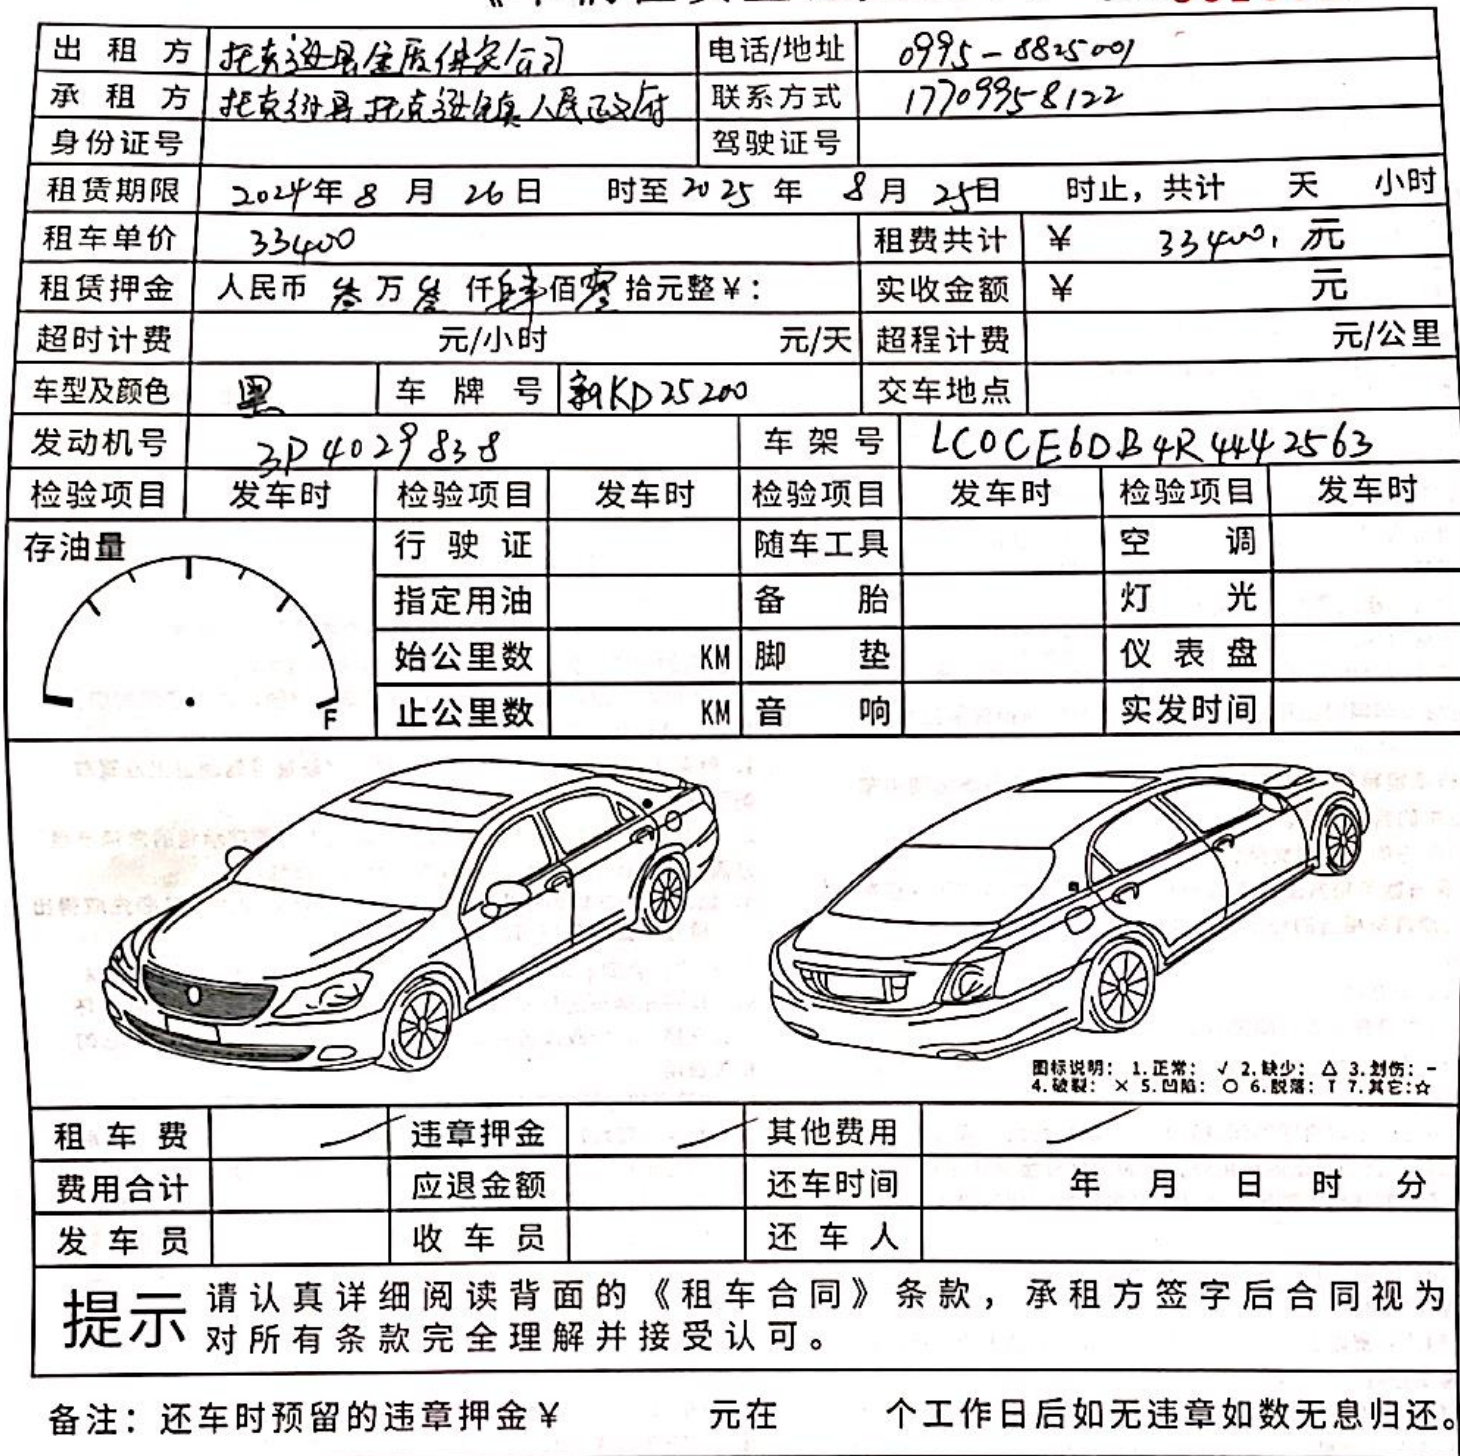 出租方 托克逊县金盾保安公司 电话/地址 0995-8825001
承租方 托克逊县托克逊镇人民政府 联系方式 17709958122
身份证号 驾驶证号
租赁期限 2024年8月26日 时至2025年8月25日 时止，共计 天 小时
租车单价 33400 租费共计 ¥ 33400. 元
租赁押金 人民币叁万叁仟肆佰零拾元整¥： 实收金额 ¥ 元
超时计费 元/小时 元/天 超程计费 元/公里
车型及颜色 黑 车牌号 新KD25200 交车地点
发动机号 3P4029838 车架号 LC0CE6DB4R4442563
检验项目 发车时 检验项目 发车时 检验项目 发车时 检验项目 发车时
存油量 行驶证 随车工具 空调
指定用油 备胎 灯光
始公里数 KM 脚垫 仪表盘
F 止公里数 KM 音响 实发时间
图标说明：1.正常：√ 2.缺少：△ 3.划伤：-
4.破裂：× 5.凹陷：○ 6.脱落：T 7.其它：☆
租车费 违章押金 其他费用
费用合计 应退金额 还车时间 年 月 日 时 分
发车员 收车员 还车人
提示 请认真详细阅读背面的《租车合同》条款，承租方签字后合同视为
对所有条款完全理解并接受认可。
备注：还车时预留的违章押金¥ 元在 个工作日后如无违章如数无息归还。